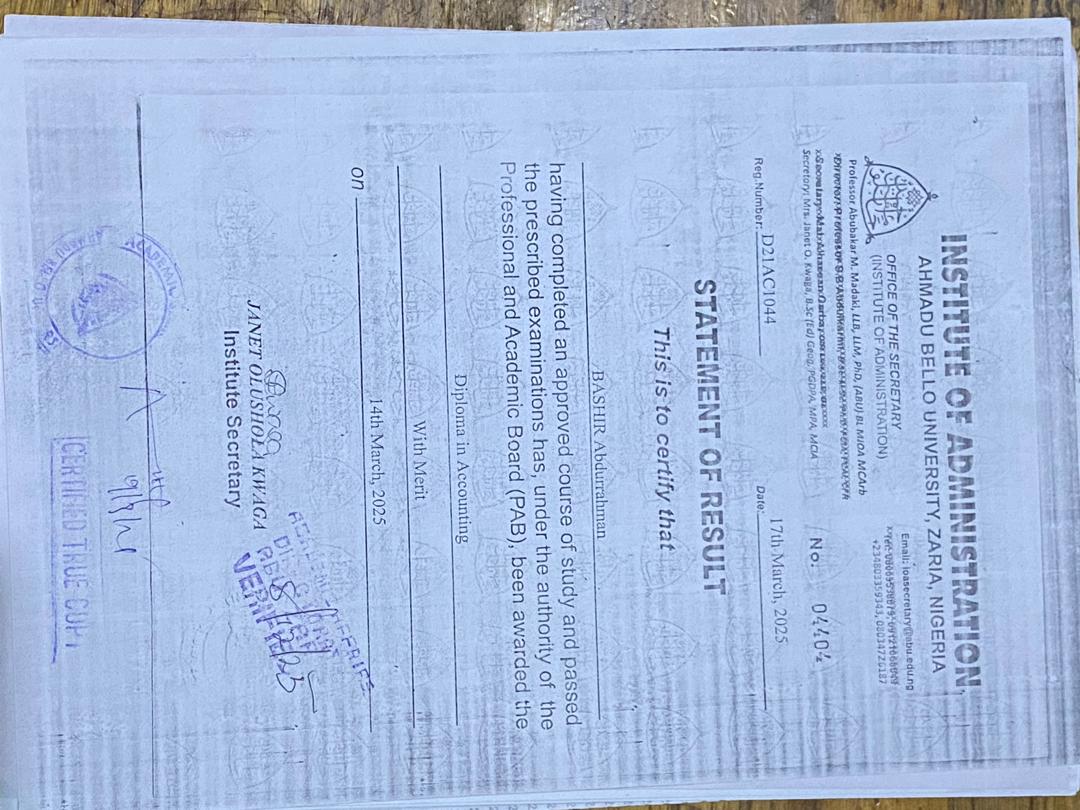 INSTITUTE OF ADMINISTRATION,
AHMADU BELLO UNIVERSITY, ZARIA, NIGERIA
OFFICE OF THE SECRETARY
(INSTITUTE OF ADMINISTRATION)
Email: ioasecretary@abu.edu.ng
+2348033593​43, 08034720187
Professor Abubakar M. Madaki, LLB, LLM, PhD, (ABU) BL MIOA MCArb
Secretary: Mrs. Janet O. Kwaga, B.Sc (Ed) Geog, PGDPA, MPA, MCIA
No. 04404
Reg.Number: D21AC1044
Date: 17th March, 2025
STATEMENT OF RESULT
This is to certify that
BASHIR Abdurrahman
having completed an approved course of study and passed
the prescribed examinations has, under the authority of the
Professional and Academic Board (PAB), been awarded the
Diploma in Accounting
With Merit
on 14th March, 2025
JANET OLUSHOLA KWAGA
Institute Secretary
VERIFIED
CERTIFIED TRUE COPY